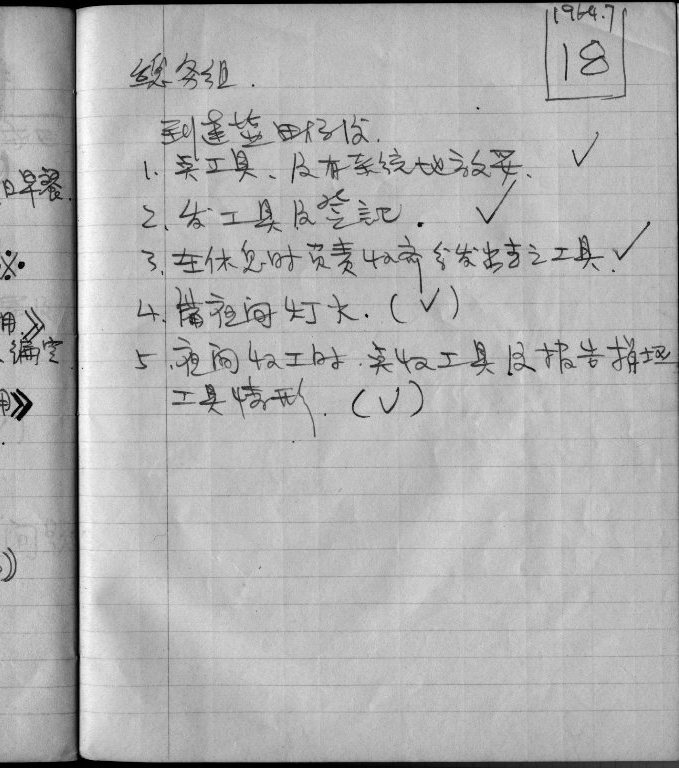 1964.7
18
总务组.
到達营田仔後.
1. 卖工具、及有系统地放妥. ✓
2. 发工具及登記. ✓
3. 在休息时負責收齊分发出去之工具. ✓
4. 備夜间灯火. (✓)
5. 夜间收工时. 卖收工具及报告損坏
工具情形. (✓)
日早餐.
※.
用》
编定
用》